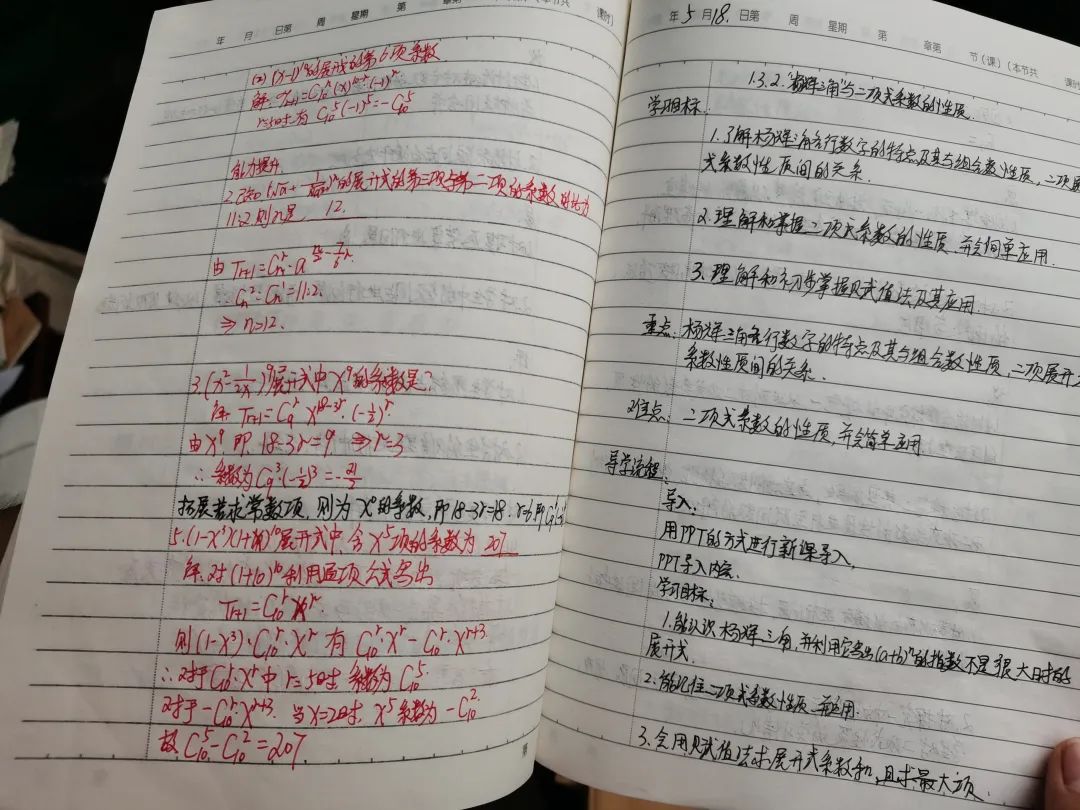 年 月 日第 周 星期 第 章第 (本节共 课时)
(2) (x-1)¹⁰的展式的第6项系数
解: Tr+1=C₁₀ʳ(x)¹⁰⁻ʳ·(-1)ʳ
r=5时有 C₁₀⁵(-1)⁵=-C₁₀⁵
能力提升.
的展开式的第三项与第二项的系数的比为
11:2.则n是 12.
由 Tr+1=Cnʳ·a
∴Cn²:Cn¹=11:2.
⇒ n=12.
3.(x²-1/2x)⁹展开式中x⁹的系数是?
解: Tr+1=C₉ʳ x¹⁸⁻³ʳ·(-1/2)ʳ
由x⁹,即 18-3r=9 ⇒r=3
∴系数为C₉³·(-1/2)³=-21/2
拓展若求常数项,则为x⁰的系数,即18-3r=
5.(1-x³)(1+x)¹⁰展开式中,含x⁵项的系数为 207
解:对(1+x)¹⁰利用通项公式写出
Tr+1=C₁₀ʳ xʳ.
则(1-x³)·C₁₀ʳ·xʳ 有 C₁₀ʳ·xʳ-C₁₀ʳ·xʳ⁺³
∴对于C₁₀ʳ·xʳ中r=5时 系数为C₁₀⁵.
对于-C₁₀ʳ·xʳ⁺³.当x=2时,x⁵系数为-C₁₀².
故C₁₀⁵-C₁₀²=207
年 5月18.日第 周 星期 第 章第 节(课)(本节共 课时
1.3.2."杨辉三角"与二项式系数的性质.
学习目标:
1.了解杨辉三角各行数字的特点及其与组合数性质,二项展
式系数性质间的关系.
2.理解和掌握二项式系数的性质,并会简单应用.
3.理解和初步掌握赋值法及其应用.
重点:杨辉三角各行数字的特点及其与组合数性质,二项展开式
系数性质间的关系.
难点:二项式系数的性质,并会简单应用.
导学流程:
导入:
用PPT的方式进行新课导入.
PPT导入内容.
学习目标:
1.能认识杨辉三角,并利用它写出(a+b)ⁿ的指数不是很大时的
展开式.
2.能记住二项式系数性质并应用.
3.会用赋值法求展开式系数和,且求最大项.